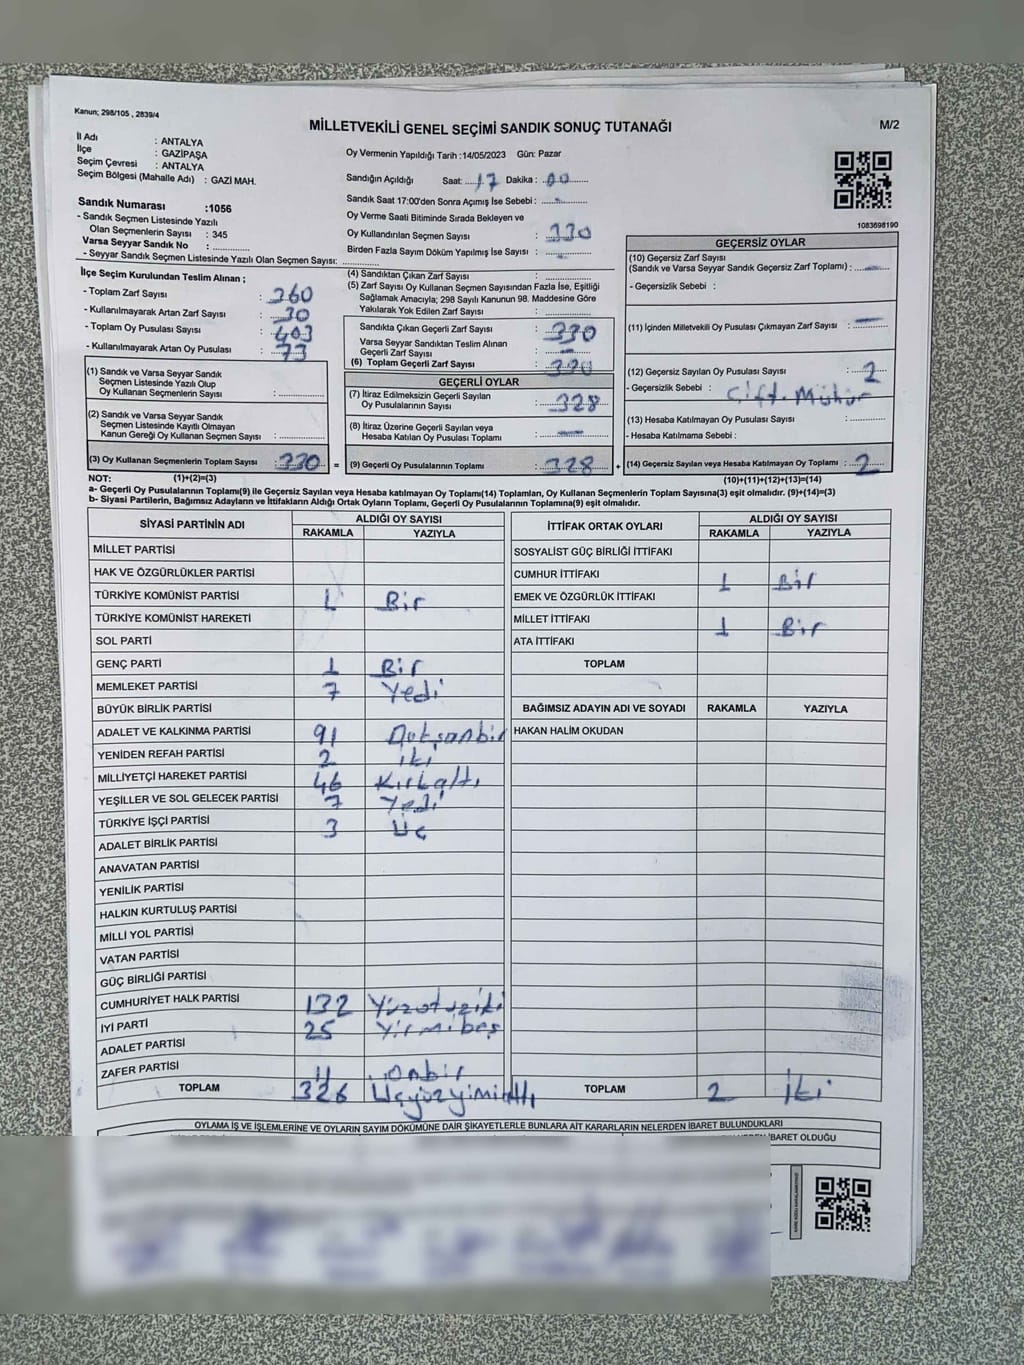 Kanun; 298/105 , 2839/4
MİLLETVEKİLİ GENEL SEÇİMİ SANDIK SONUÇ TUTANAĞI
M/2
İl Adı : ANTALYA
İlçe : GAZİPAŞA
Seçim Çevresi : ANTALYA
Seçim Bölgesi (Mahalle Adı) : GAZİ MAH.
Sandık Numarası :1056
- Sandık Seçmen Listesinde Yazılı
Olan Seçmenlerin Sayısı : 345
Varsa Seyyar Sandık No : ..............
- Seyyar Sandık Seçmen Listesinde Yazılı Olan Seçmen Sayısı: ..............
Oy Vermenin Yapıldığı Tarih :14/05/2023 Gün: Pazar
Sandığın Açıldığı Saat: 17 Dakika : 00
Sandık Saat 17:00'den Sonra Açımış İse Sebebi : -
Oy Verme Saati Bitiminde Sırada Bekleyen ve
Oy Kullandırılan Seçmen Sayısı : 330
Birden Fazla Sayım Döküm Yapılmış İse Sayısı : -
1083698190
İlçe Seçim Kurulundan Teslim Alınan ;
- Toplam Zarf Sayısı : 360
- Kullanılmayarak Artan Zarf Sayısı : 30
- Toplam Oy Pusulası Sayısı : 403
- Kullanılmayarak Artan Oy Pusulası : 73
(1) Sandık ve Varsa Seyyar Sandık
Seçmen Listesinde Yazılı Olup
Oy Kullanan Seçmenlerin Sayısı : ..............
(2) Sandık ve Varsa Seyyar Sandık
Seçmen Listesinde Kayıtlı Olmayan
Kanun Gereği Oy Kullanan Seçmen Sayısı : ..............
(3) Oy Kullanan Seçmenlerin Toplam Sayısı : 330 =
(4) Sandıktan Çıkan Zarf Sayısı : ..............
(5) Zarf Sayısı Oy Kullanan Seçmen Sayısından Fazla İse, Eşitliği
Sağlamak Amacıyla; 298 Sayılı Kanunun 98. Maddesine Göre
Yakılarak Yok Edilen Zarf Sayısı : ..............
Sandıkta Çıkan Geçerli Zarf Sayısı : 330
Varsa Seyyar Sandıktan Teslim Alınan
Geçerli Zarf Sayısı : -
(6) Toplam Geçerli Zarf Sayısı : 330
GEÇERLİ OYLAR
(7) İtiraz Edilmeksizin Geçerli Sayılan
Oy Pusulalarının Sayısı : 328
(8) İtiraz Üzerine Geçerli Sayılan veya
Hesaba Katılan Oy Pusulası Toplamı : -
(9) Geçerli Oy Pusulalarının Toplamı : 328 +
GEÇERSİZ OYLAR
(10) Geçersiz Zarf Sayısı
(Sandık ve Varsa Seyyar Sandık Geçersiz Zarf Toplamı) : -
- Geçersizlik Sebebi :
(11) İçinden Milletvekili Oy Pusulası Çıkmayan Zarf Sayısı : -
(12) Geçersiz Sayılan Oy Pusulası Sayısı : 2
- Geçersizlik Sebebi : Çift Mühür
(13) Hesaba Katılmayan Oy Pusulası Sayısı : ..............
- Hesaba Katılmama Sebebi :
(14) Geçersiz Sayılan veya Hesaba Katılmayan Oy Toplamı : 2
NOT: (1)+(2)=(3) (10)+(11)+(12)+(13)=(14)
a- Geçerli Oy Pusulalarının Toplamı(9) ile Geçersiz Sayılan veya Hesaba katılmayan Oy Toplamı(14) Toplamları, Oy Kullanan Seçmenlerin Toplam Sayısına(3) eşit olmalıdır. (9)+(14)=(3)
b- Siyasi Partilerin, Bağımsız Adayların ve İttifakların Aldığı Ortak Oyların Toplamı, Geçerli Oy Pusulalarının Toplamına(9) eşit olmalıdır.
SİYASİ PARTİNİN ADI ALDIĞI OY SAYISI
RAKAMLA YAZIYLA
MİLLET PARTİSİ
HAK VE ÖZGÜRLÜKLER PARTİSİ
TÜRKİYE KOMÜNİST PARTİSİ 1 Bir
TÜRKİYE KOMÜNİST HAREKETİ
SOL PARTİ
GENÇ PARTİ 1 Bir
MEMLEKET PARTİSİ 7 Yedi
BÜYÜK BİRLİK PARTİSİ
ADALET VE KALKINMA PARTİSİ 91 Doksanbir
YENİDEN REFAH PARTİSİ 2 iki
MİLLİYETÇİ HAREKET PARTİSİ 46 Kırkaltı
YEŞİLLER VE SOL GELECEK PARTİSİ 7 Yedi
TÜRKİYE İŞÇİ PARTİSİ 3 Üç
ADALET BİRLİK PARTİSİ
ANAVATAN PARTİSİ
YENİLİK PARTİSİ
HALKIN KURTULUŞ PARTİSİ
MİLLİ YOL PARTİSİ
VATAN PARTİSİ
GÜÇ BİRLİĞİ PARTİSİ
CUMHURİYET HALK PARTİSİ 132 Yüzotuziki
İYİ PARTİ 25 Yirmibeş
ADALET PARTİSİ
ZAFER PARTİSİ 11 Onbir
TOPLAM 326 Üçyüzyimialtı
İTTİFAK ORTAK OYLARI ALDIĞI OY SAYISI
RAKAMLA YAZIYLA
SOSYALİST GÜÇ BİRLİĞİ İTTİFAKI
CUMHUR İTTİFAKI 1 Bir
EMEK VE ÖZGÜRLÜK İTTİFAKI
MİLLET İTTİFAKI 1 Bir
ATA İTTİFAKI
TOPLAM
BAĞIMSIZ ADAYIN ADI VE SOYADI RAKAMLA YAZIYLA
HAKAN HALİM OKUDAN
TOPLAM 2 İki
OYLAMA İŞ VE İŞLEMLERİNE VE OYLARIN SAYIM DÖKÜMÜNE DAİR ŞİKAYETLERLE BUNLARA AİT KARARLARIN NELERDEN İBARET BULUNDUKLARI
İBARET OLDUĞU